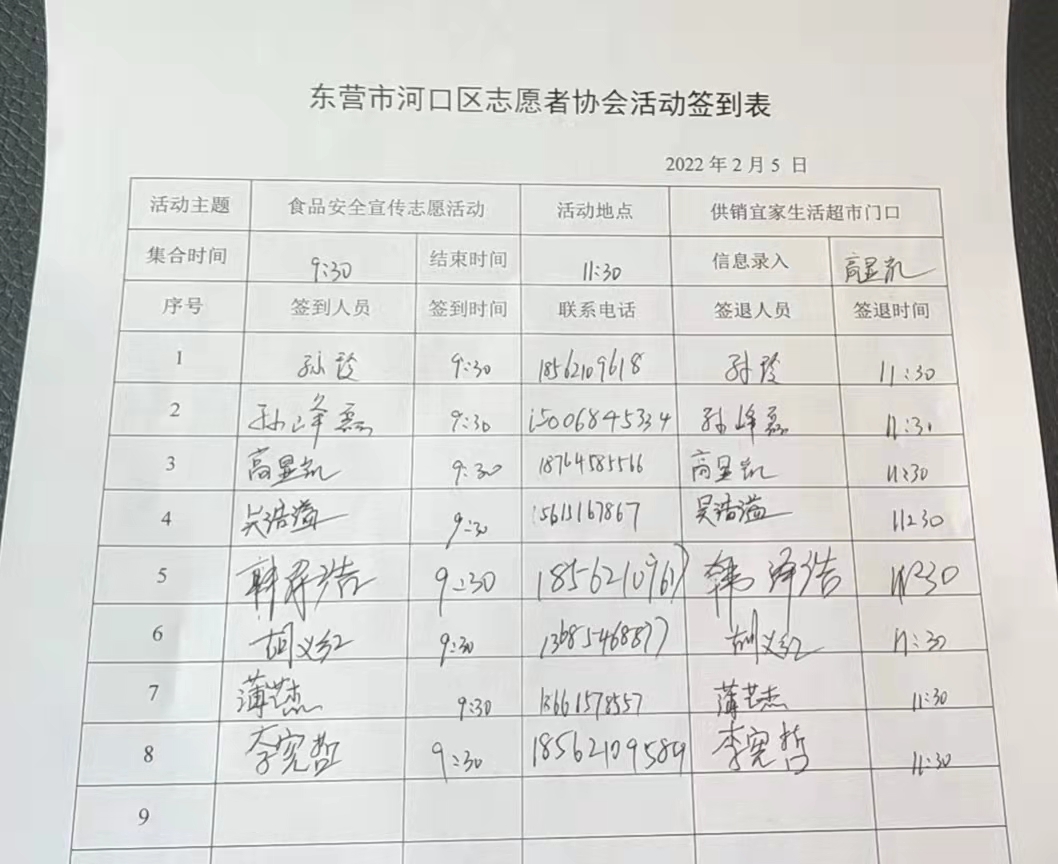 东营市河口区志愿者协会活动签到表
2022 年 2 月 5 日
活动主题 食品安全宣传志愿活动 活动地点 供销宜家生活超市门口
集合时间 9:30 结束时间 11:30 信息录入 高显凯
序号 签到人员 签到时间 联系电话 签退人员 签退时间
1 孙玲 9:30 18562109618 孙玲 11:30
2 孙峰磊 9:30 15006845334 孙峰磊 11:30
3 高显凯 9:30 18764585566 高显凯 11:30
4 吴浩溢 9:30 吴浩溢 11:30
5 韩泽浩 9:30 18562109617 韩泽浩 11:30
6 胡义红 9:30 13685468877 胡义红 11:30
7 薄艺杰 9:30 13661578557 薄艺杰 11:30
8 李宪哲 9:30 18562109584 李宪哲 11:30
9